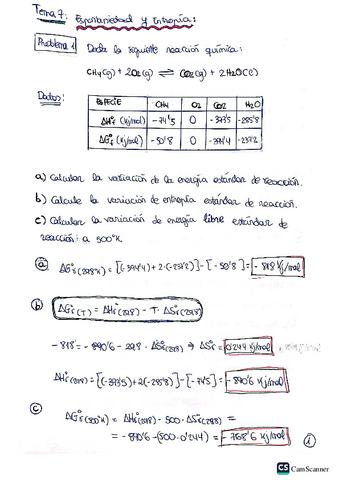 Tema 7: Espontaneidad y Entropía:
Problema 1 Dada la siguiente reacción química:
CH4(g) + 2O2(g) ⇌ CO2(g) + 2H2O(l)
Datos:
ESPECIE CH4 O2 CO2 H2O
ΔHºf (Kj/mol) -74'5 0 -393'5 -285'8
ΔGºf (Kj/mol) -50'8 0 -394'4 -237'2
a) Calcular la variación de la energía estándar de reacción.
b) Calcule la variación de entropía estándar de reacción.
c) Calcular la variación de energía libre estándar de
reacción: a 500ºK
a) ΔGºr(298K) = [(-394'4) + 2·(-237'2)] - [-50'8] = -818 Kj/mol
b) ΔGºr(T) = ΔHºr(298) - T·ΔSºr(298)
-818 = -890'6 - 298·ΔSºr(298) → ΔSºr = 0'244 Kj/mol
ΔHºr(298) = [(-393'5) + 2(-285'8)] - [-74'5] = -890'6 Kj/mol
c) ΔGºr(500K) = ΔHºr(298) - 500·ΔSºr(298) =
= -890'6 - (500·0'244) = -768'6 Kj/mol
CS CamScanner